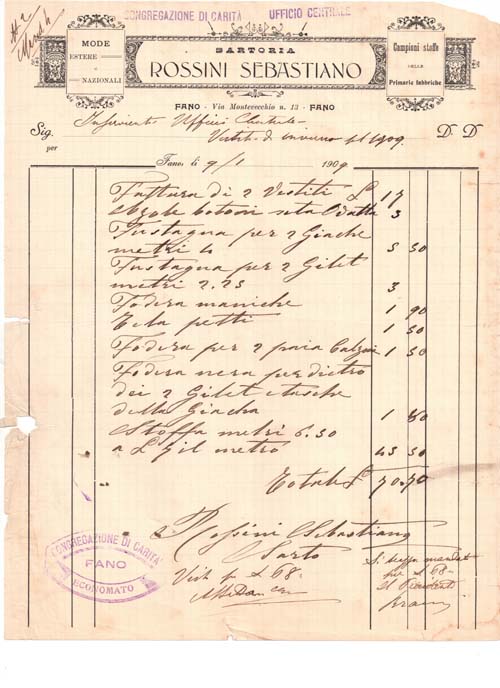 CONGREGAZIONE DI CARITÀ UFFICIO CENTRALE
MODE
ESTERE E NAZIONALI
SARTORIA
ROSSINI SEBASTIANO
Campioni stoffe
DELLE
Primarie fabbriche
FANO - Via Montevecchio n. 13 - FANO
Sig. Inserviente Ufficio Centrale D. D.
per Vestito d'inverno 1909
Fano, li 9/1 1909
Fattura di 2 Vestiti L. 17
bottoni seta Ovatta 3
Fustagna per 2 Giache
metri 4 5 50
Fustagna per 2 Gilet
metri 2.25 3
Fodera maniche 1 90
Tela petti 1 50
Fodera per 2 paia Calzoni 1 50
Fodera nera per dietro
dei 2 Gilet e tasche
della Giacha 1 80
Stoffa metri 6.50
a L. metro 45 50
Totale L. 70.70
Rossini Sebastiano
Sarto
Visto p L 68-
mandato
per L 68-
Il Presidente
CONGREGAZIONE DI CARITÀ
FANO
ECONOMATO